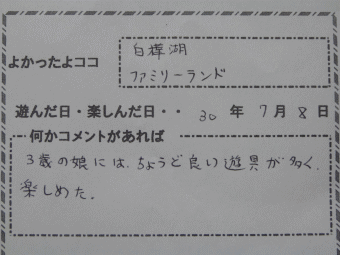 白樺湖
よかったよココ ファミリーランド
遊んだ日・楽しんだ日・・ 30 年 7 月 8 日
何かコメントがあれば
3歳の娘には、ちょうど良い遊具が多く、
楽しめた。